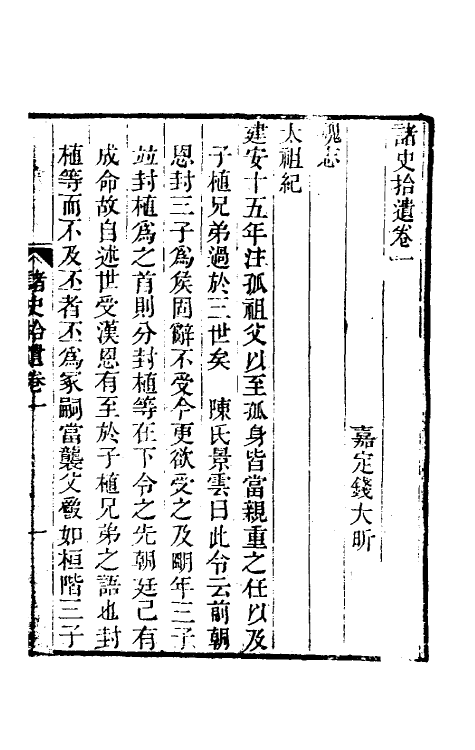 諸史拾遺卷一
嘉定錢大昕
魏志
太祖紀
建安十五年注孤祖父以至孤身皆當親重之任以及
子植兄弟過於三世矣　陳氏景雲曰此令云前朝
恩封三子爲侯固辭不受今更欲受之及明年三子
並封植爲之首則分封植等在下令之先朝廷已有
成命故自述世受漢恩有至於子植兄弟之語也封
植等而不及丕者丕爲冢嗣當襲父爵如桓階三子
諸史拾遺卷一
一